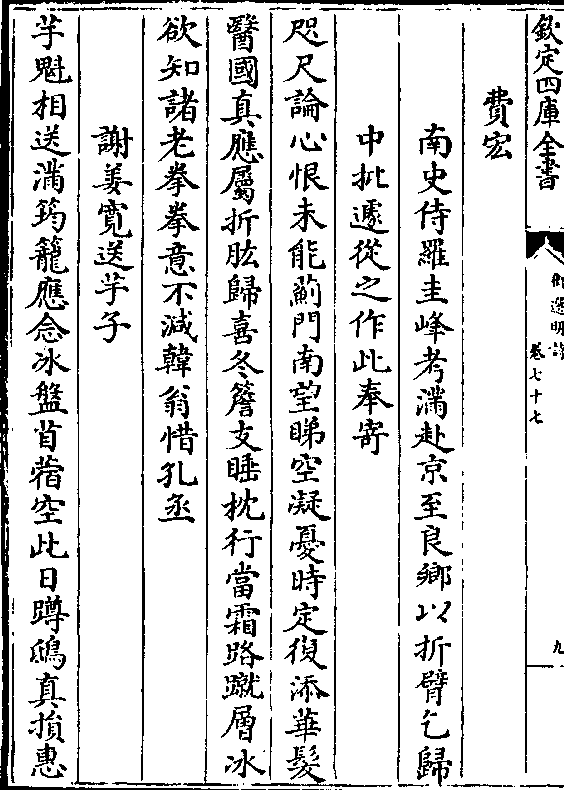 欽定四庫全書
御選明詩
卷七十七
九
費宏
南史侍羅圭峰考滿赴京至良鄉以折臂乞歸
中批遽從之作此奉寄
咫尺論心恨未能薊門南望睇空凝憂時定復添華髮
醫國真應屬折肱歸喜冬簷支睡枕行當霜路蹴層冰
欲知諸老拳拳意不減韓翁惜孔丞
謝姜寛送芋子
芋魁相送滿筠籠應念冰盤苜蓿空此日蹲鴟真損惠